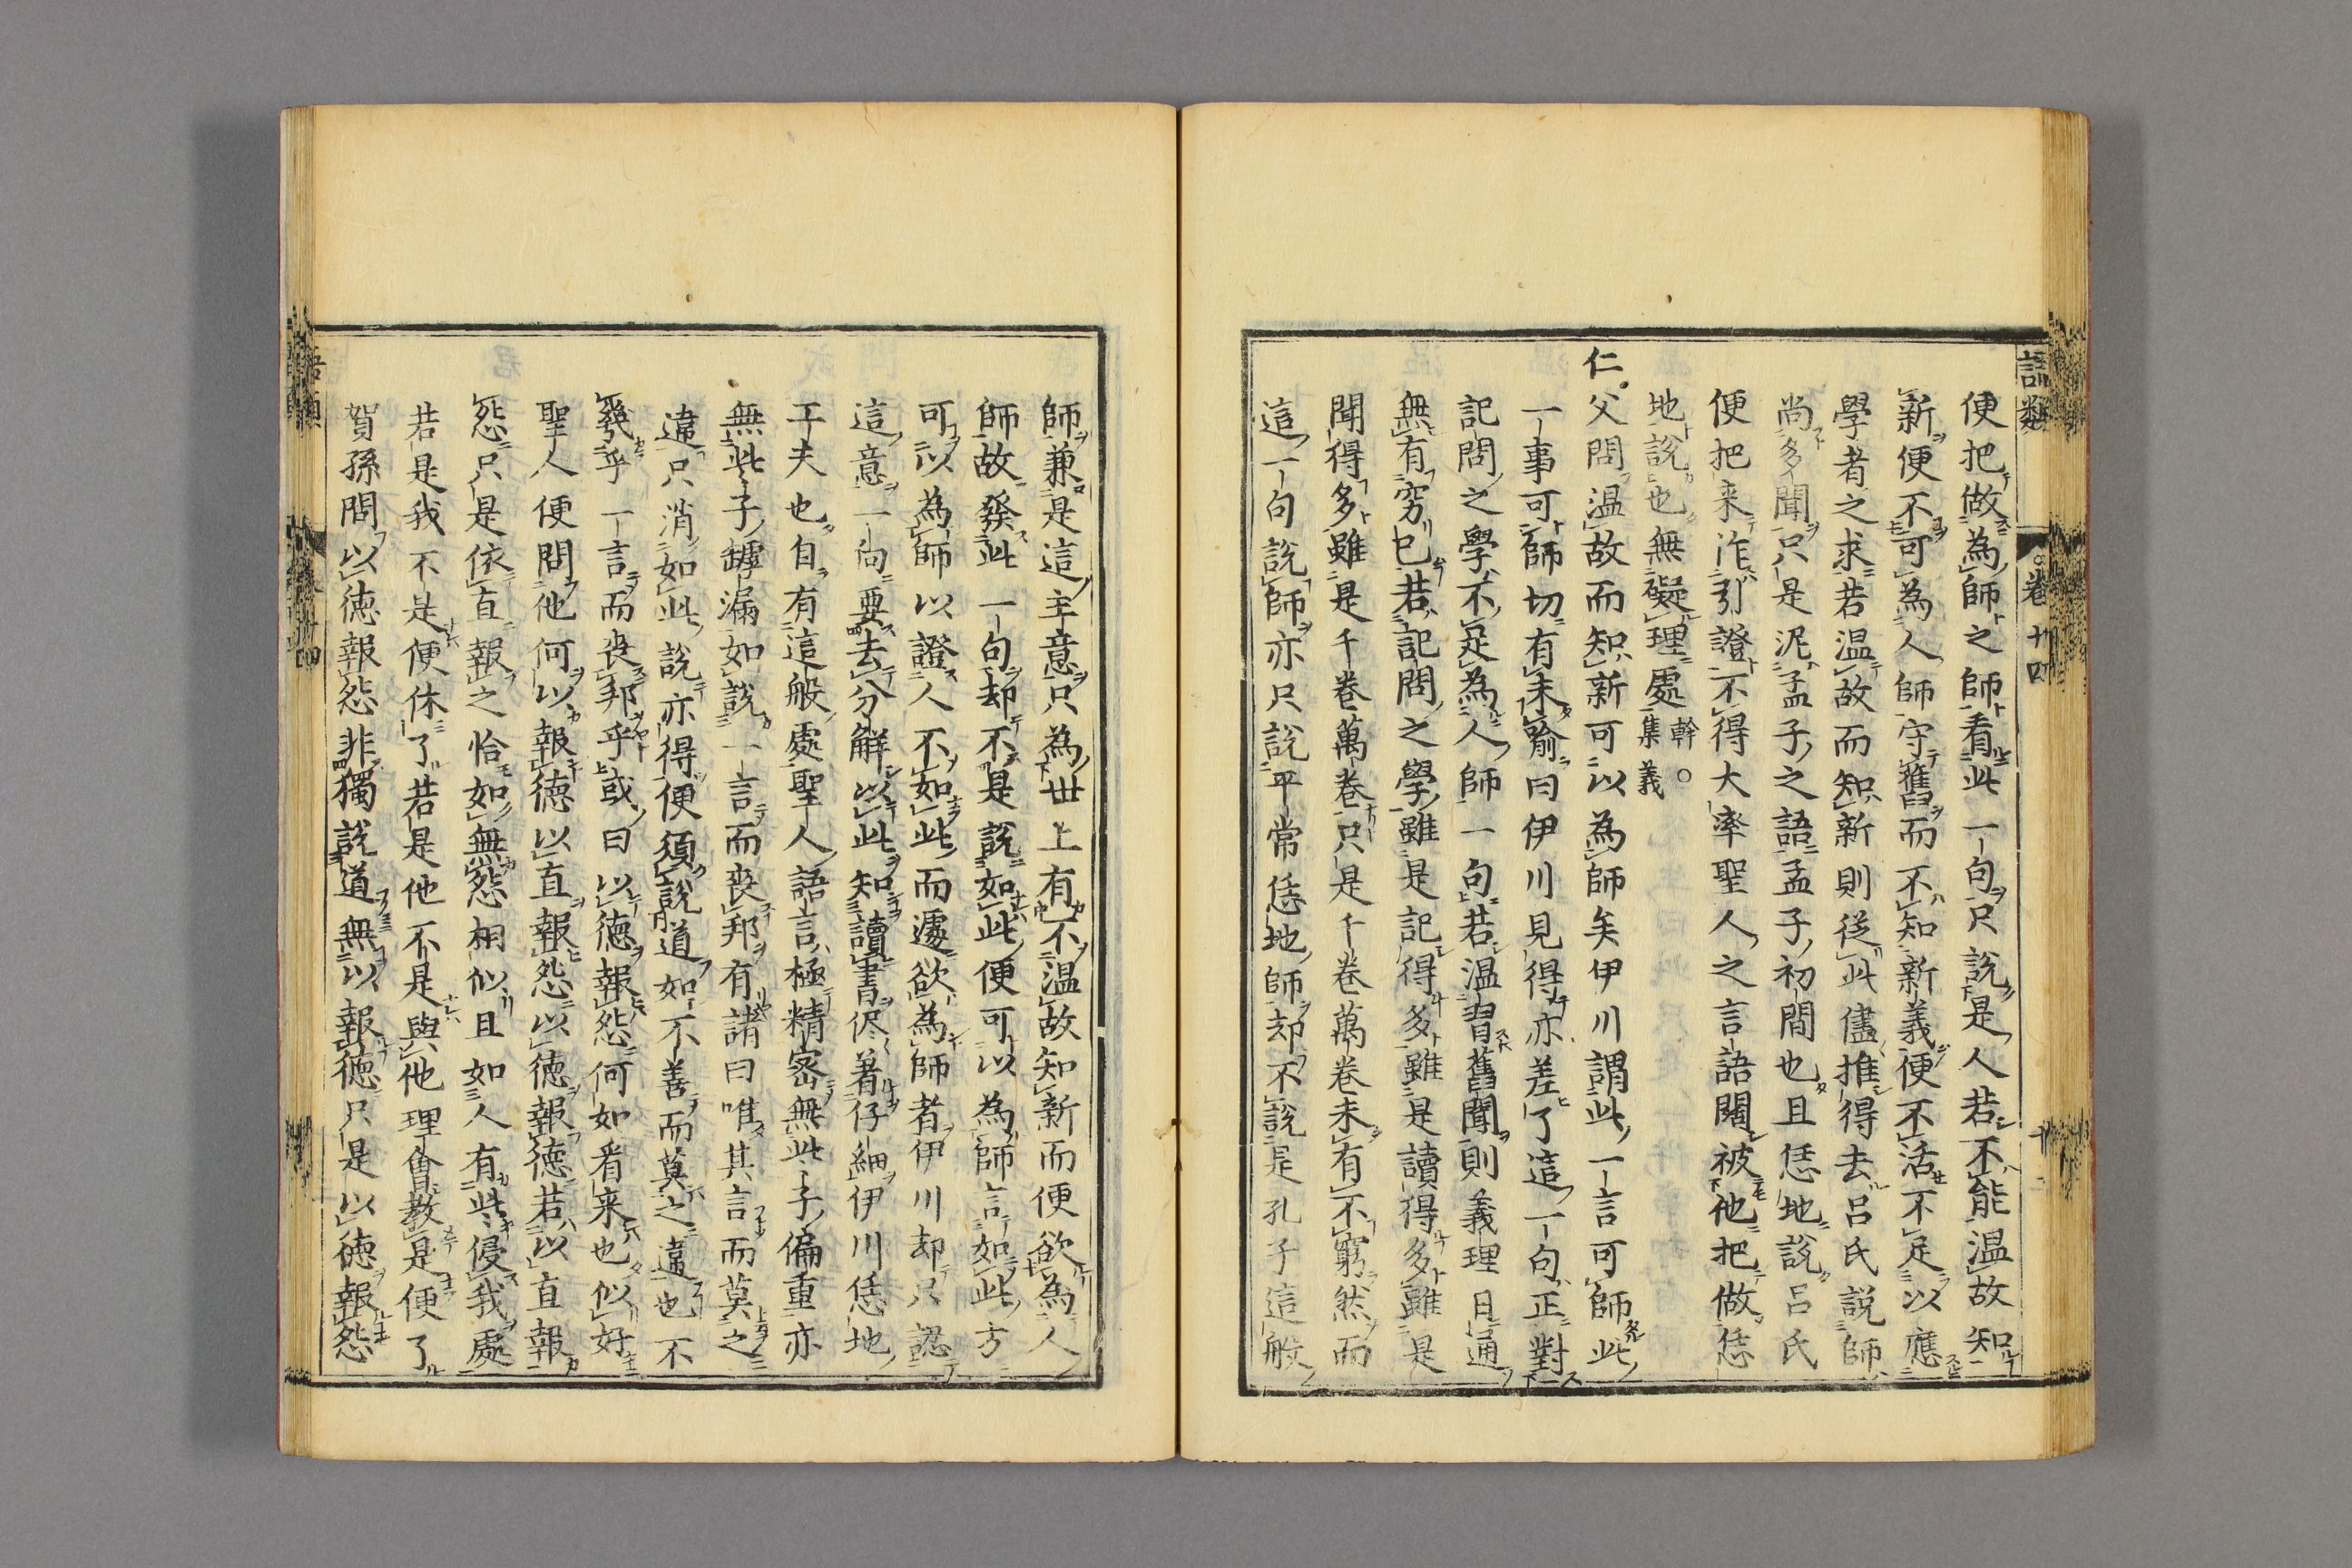 語類
卷十四
十二
便把做為師之師看此一句只說是人若不能温故知
新便不可為人師守舊而不知新義便不活不足以應
學者之求若温故而知新則從此儘推得去呂氏說師
尚多聞只是泥孟子之語孟子初間也且恁地說呂氏
便把来作引證不得大率聖人之言語闊被他把做恁
地說也無礙理處幹○集義
仁父問温故而知新可以為師矣伊川謂此一言可師此
一事可師切有未喻曰伊川見得亦差了這一句正對
記問之學不足為人師一句若温習舊聞則義理日通
無有窮已若記問之學雖是記得多雖是讀得多雖是
聞得多雖是千卷萬卷只是千卷萬卷未有不窮然而
這一句說師亦只說平常恁地師却不說是孔子這般
師兼是這主意只為世上有不温故知新而便欲為人
師故發此一句却不是說如此便可以為師言如此方
可以為師以證人不如此而遽欲為師者伊川却只認
這意一向要去分解以此知讀書侭着仔細伊川恁地
工夫也自有這般處聖人語言極精密無此子偏重亦
無此子罅漏如說一言而喪邦有諸曰唯其言而莫之
違只消如此說亦得便須說道如不善而莫之違也不
幾乎一言而喪邦乎或曰以德報怨何如看来也似好
聖人便問他何以報德以直報怨以德報德若以直報
怨只是依直報之恰如無怨相似且如人有些侵我處
若是我不是便休了若是他不是與他理會教是便了
賀孫問以德報怨非獨說道無以報德只是以德報怨